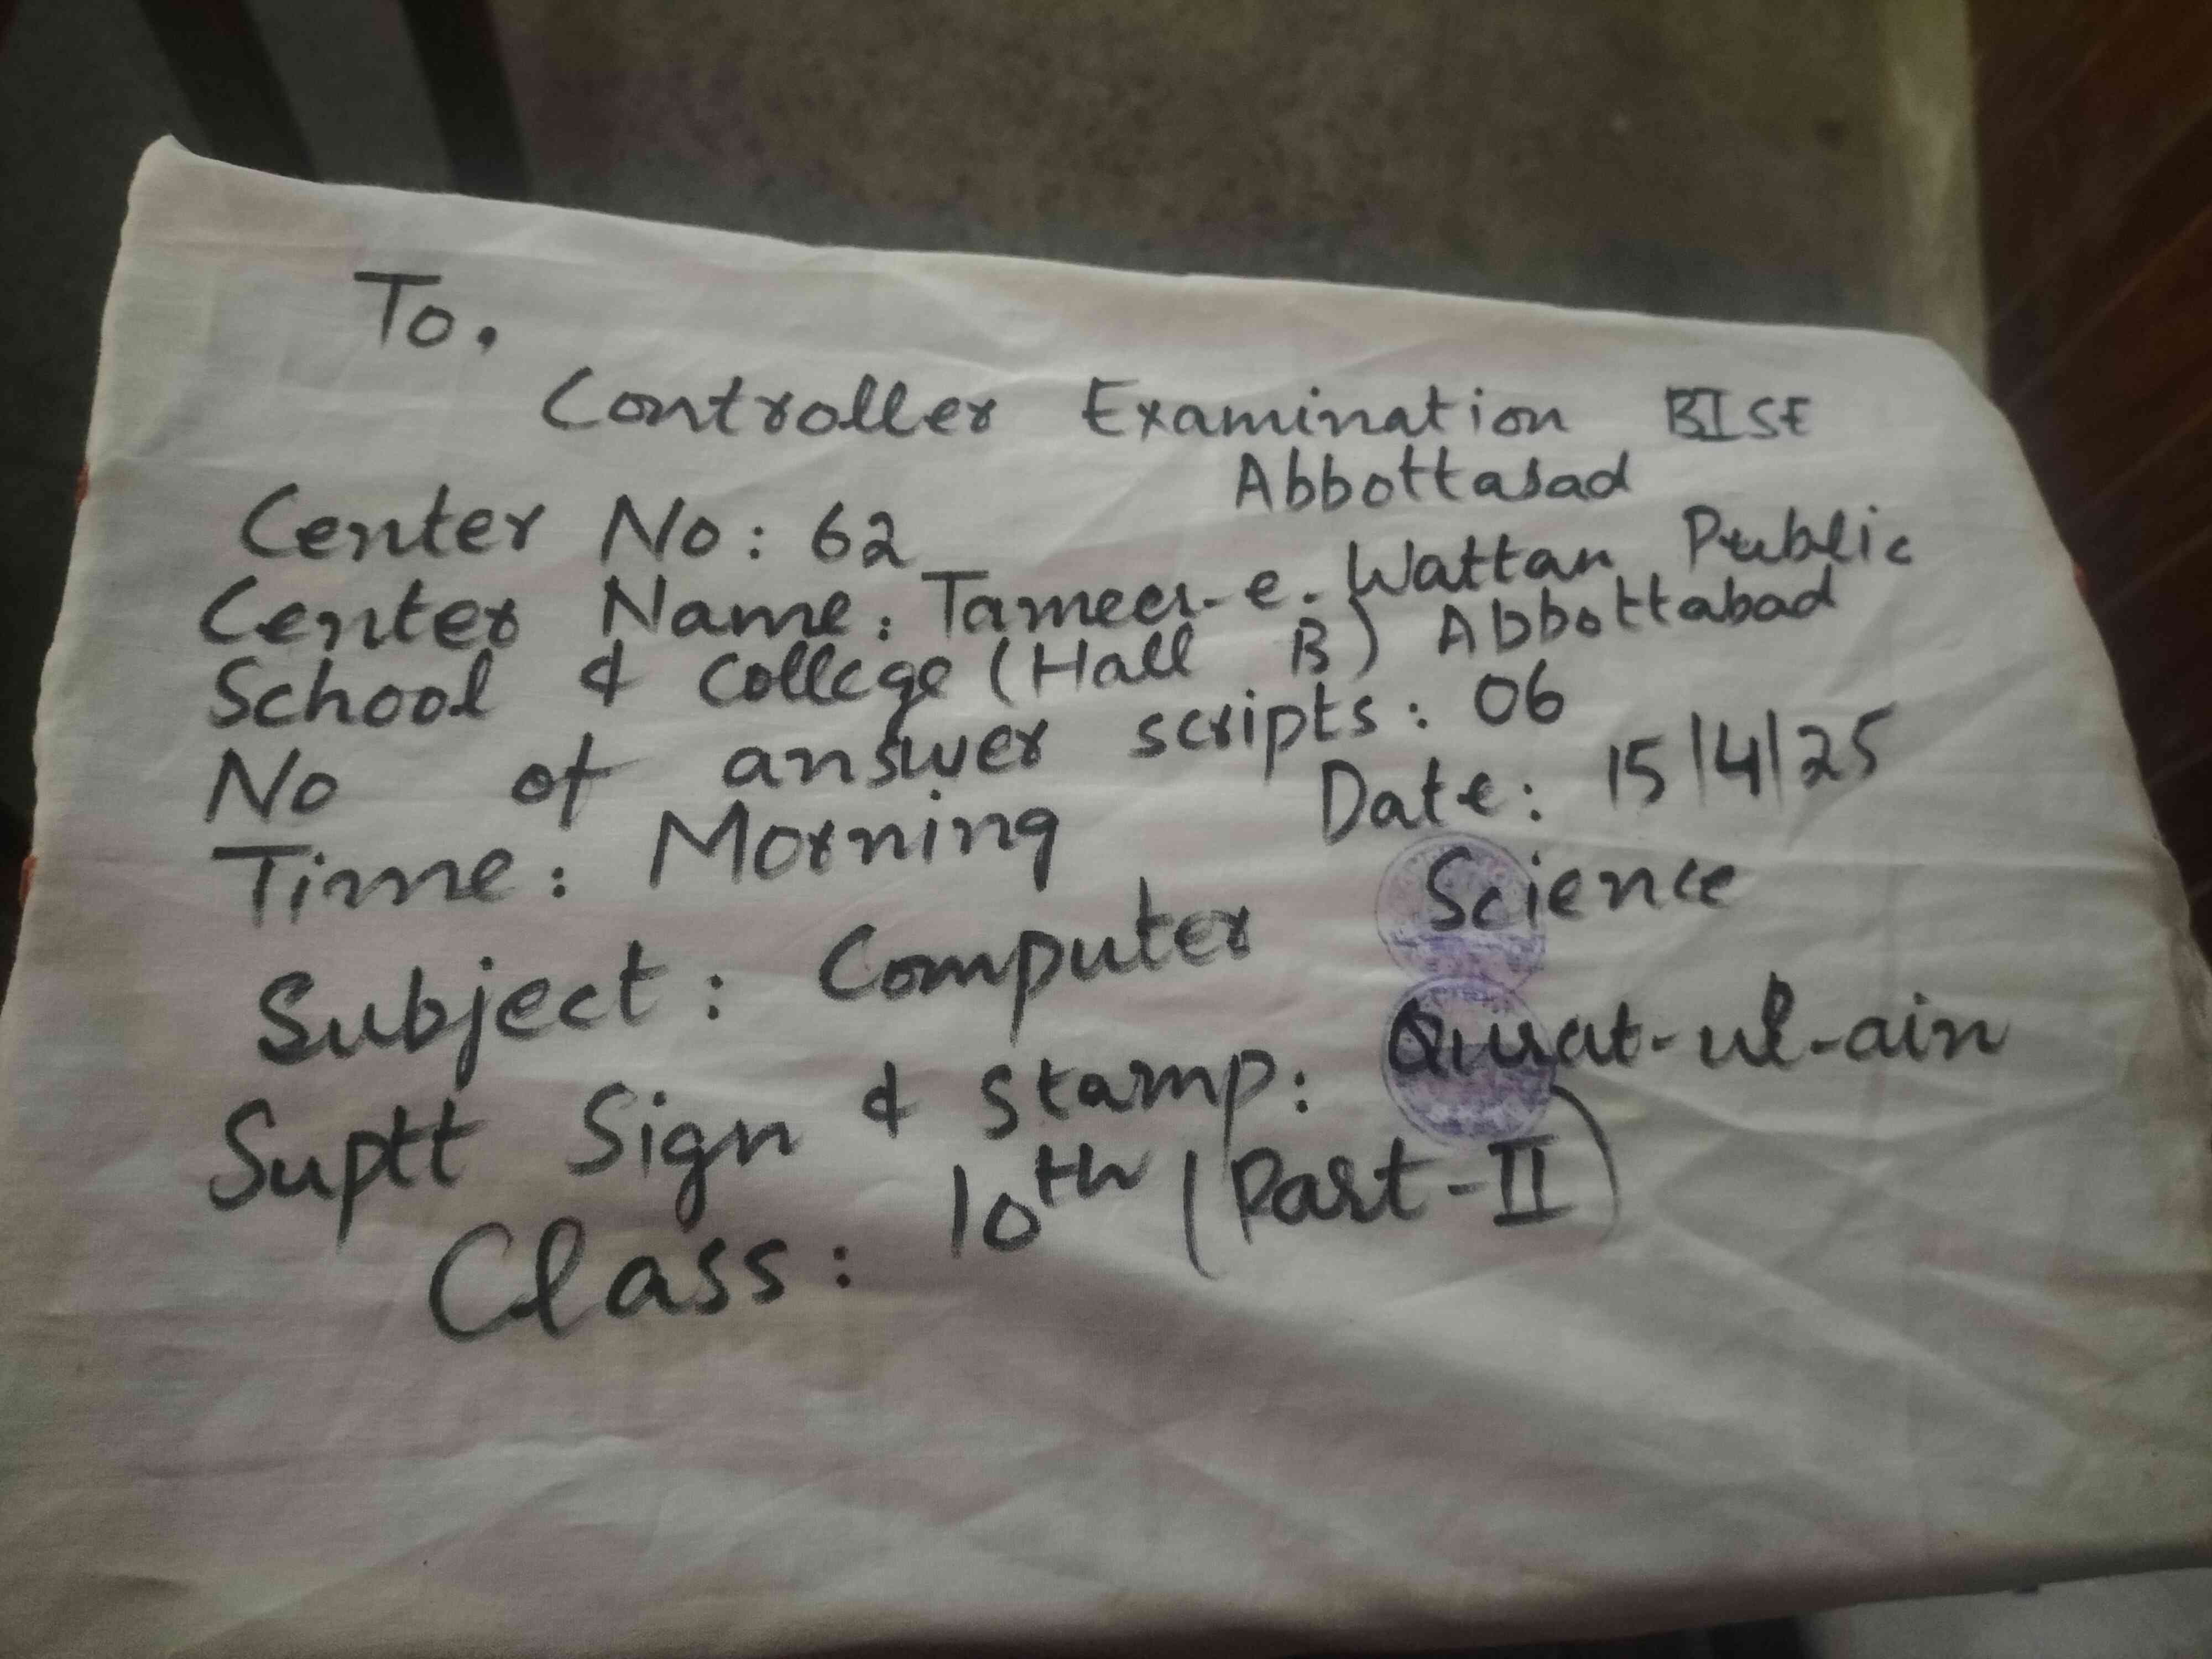 To.
Controller Examination BISE
Abbottabad
Center No: 62
Center Name: Tameer-e-Wattan Public
School & College (Hall B) Abbottabad
No of answer scripts: 06
Time: Morning Date: 15/4/25
Subject: Computer Science
Suptt Sign & Stamp: Qurat-ul-ain
Class: 10th (Part-II)